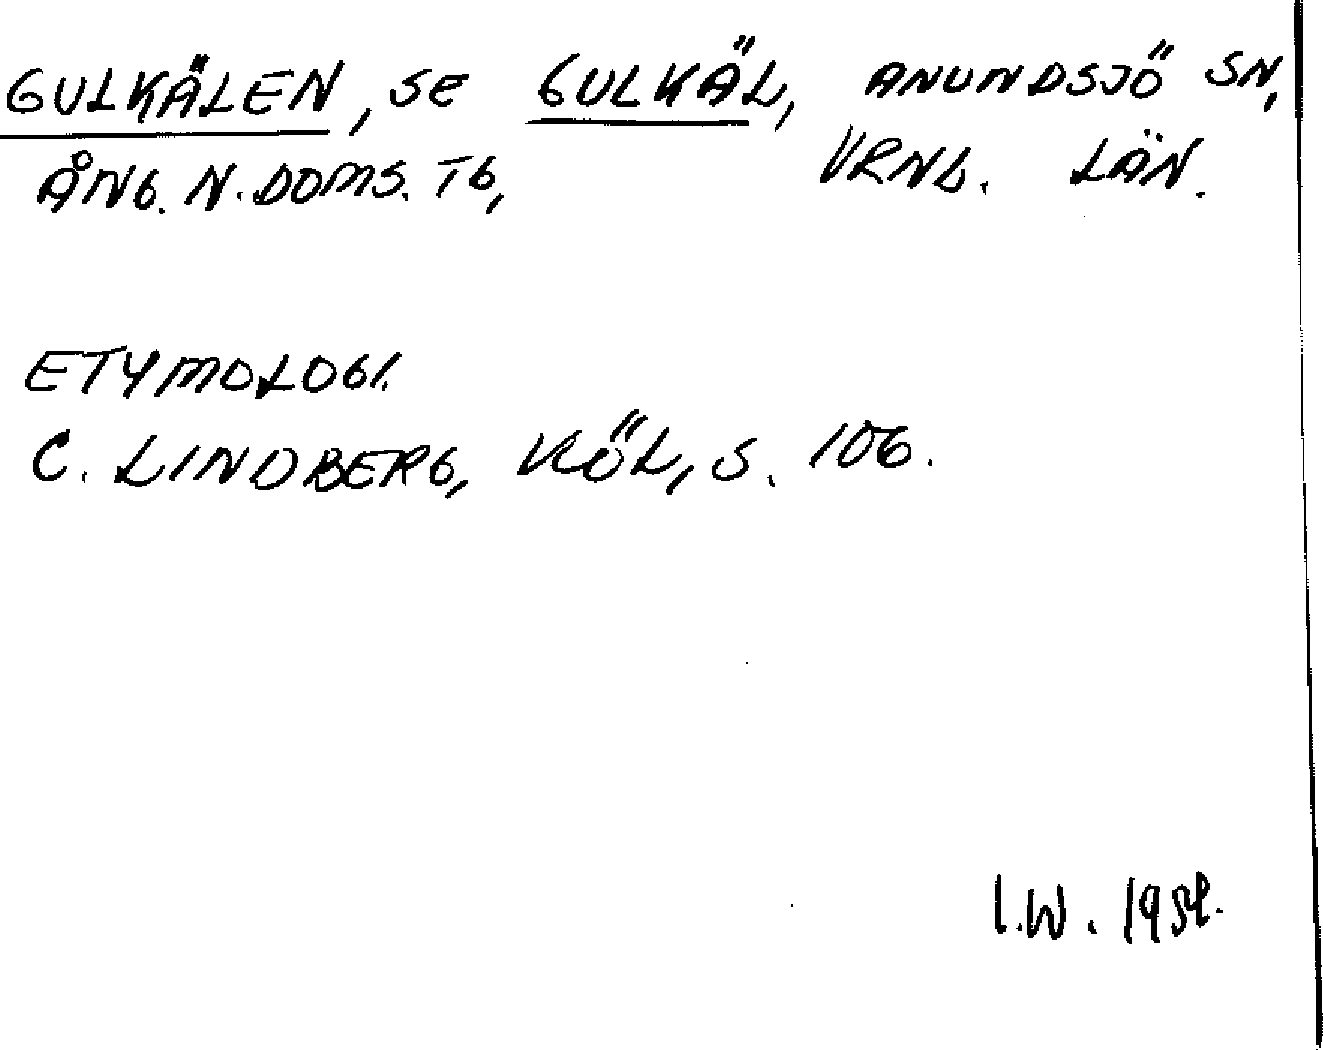 GULKÄLEN, SE GULKÄL, ANUNDSJÖ SN,
ÅNG. N. DOMS. TG, VRNL. LÄN.
ETYMOLOGI.
C. LINDBERG, KÖL, S. 106.
I.W.